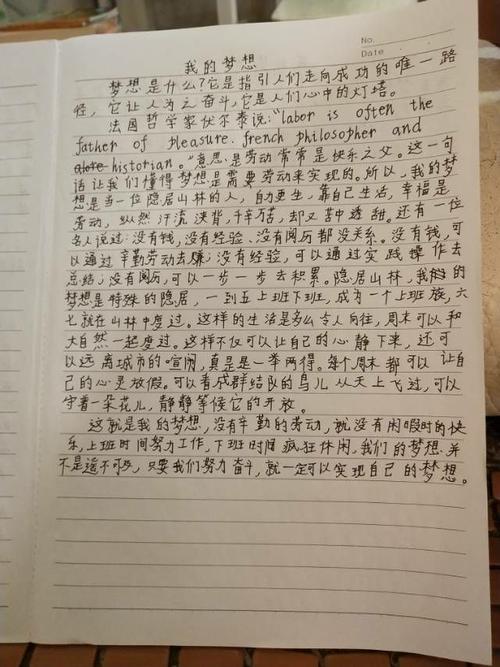 No.
Date
我的梦想
梦想是什么?它是指引人们走向成功的唯一路
径,它让人为之奋斗,它是人们心中的灯塔。
法国哲学家伏尔泰说:"labor is often the
father of pleasure. french philosopher and
historian."意思是劳动常常是快乐之父。这一句
话让我们懂得梦想是需要劳动来实现的。所以,我的梦
想是当一位隐居山林的人,自力更生,靠自己生活,幸福是
劳动,纵然汗流浃背,千辛万苦,却又苦中透甜。还有一位
名人说过:没有钱,没有经验、没有阅历都没关系。没有钱,可
以通过辛勤劳动去赚;没有经验,可以通过实践操作去
总结;没有阅历,可以一步一步去积累。隐居山林,我的
梦想是特殊的隐居,一到五上班下班,成为一个上班族,六
七就在山林中度过。这样的生活是多么令人向往,周末可以和
大自然一起度过。这样不仅可以让自己的心静下来,还可
以远离城市的喧闹,真是是一举两得。每个周末都可以让自
己的心灵放假。可以看成群结队的鸟儿从天上飞过,可以
守着一朵花儿,静静等候它的开放。
这就是我的梦想,没有辛勤的劳动,就没有闲暇时的快
乐,上班时间努力工作,下班时间疯狂休闲,我们的梦想并
不是遥不可及,只要我们努力奋斗,就一定可以实现自己的梦想。